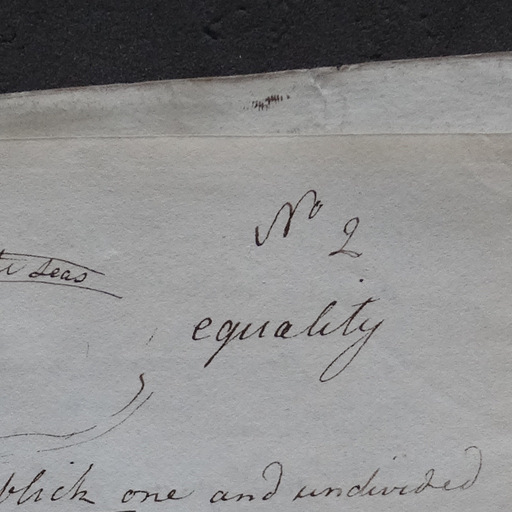 No 2
seas
equality
blick one and undivided